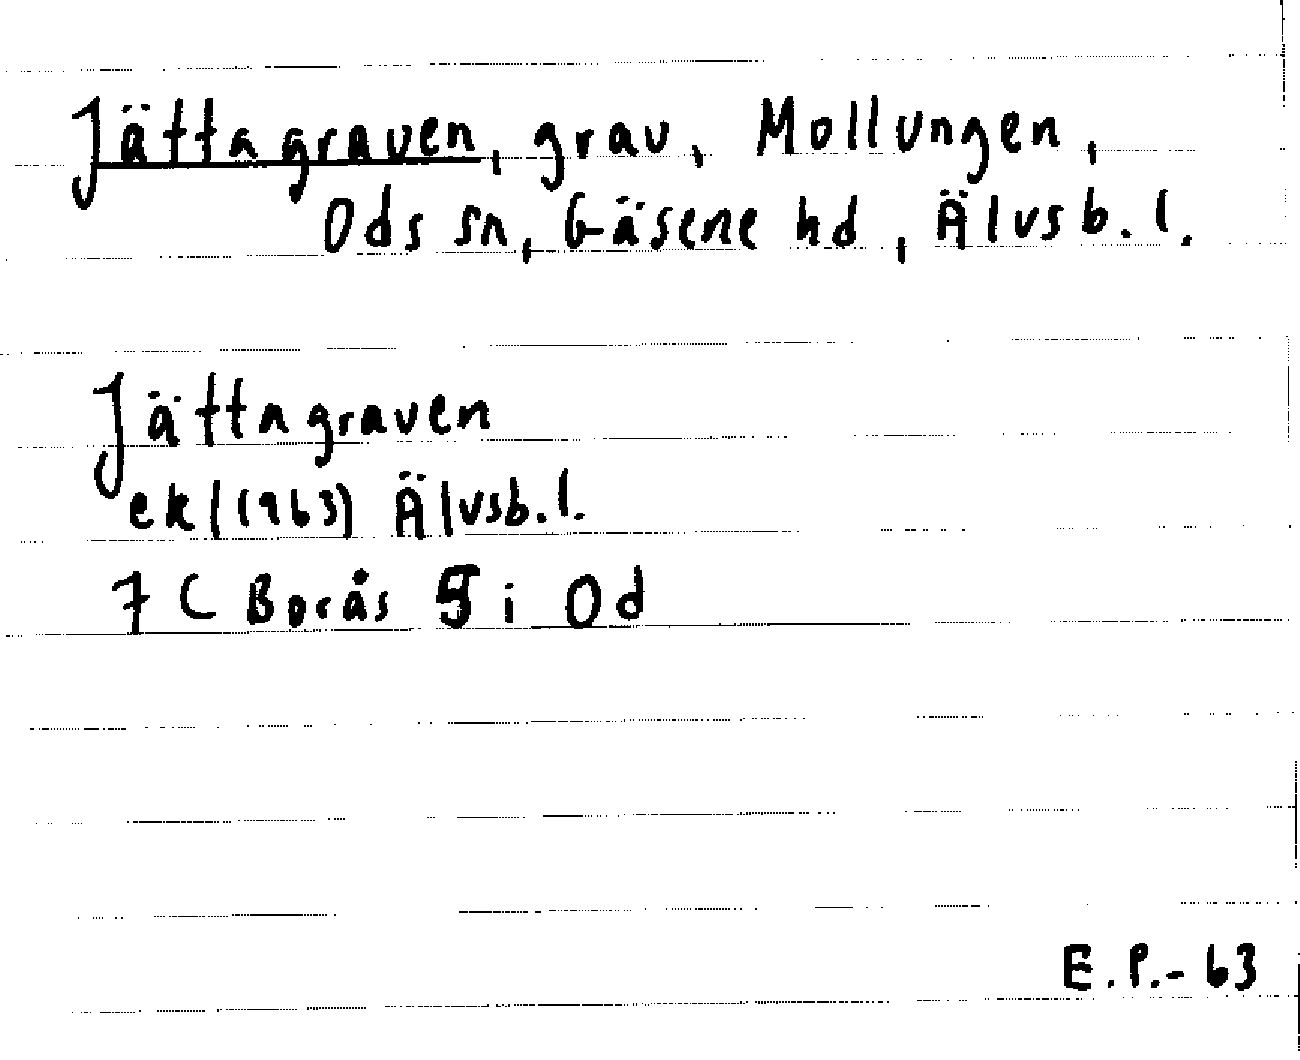 Jättagraven, grav, Mollungen,
Ods sn, Gäsene hd, Älvsb. l.
Jättagraven
ek/(1963) Älvsb. l.
7 C Borås 5 i Od
E.P.-63